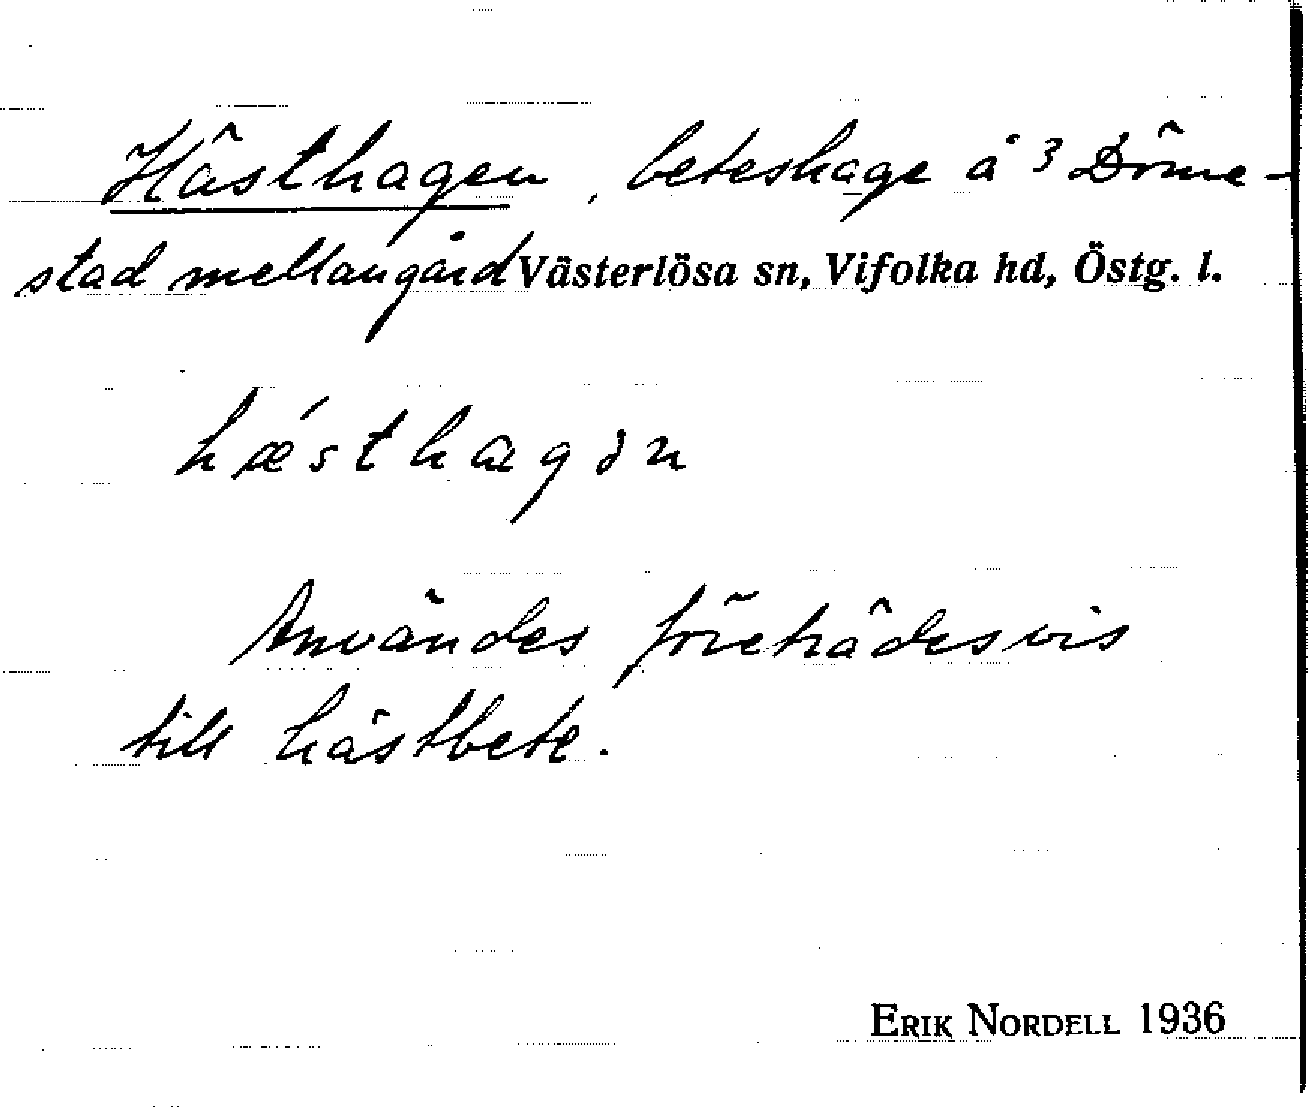 Hästhagen, beteshage å 3 Döme-
stad mellangård Västerlösa sn, Vifolka hd, Östg. l.
hǽsthagən
Användes företrädesvis
till hästbete.
ERIK NORDELL 1936